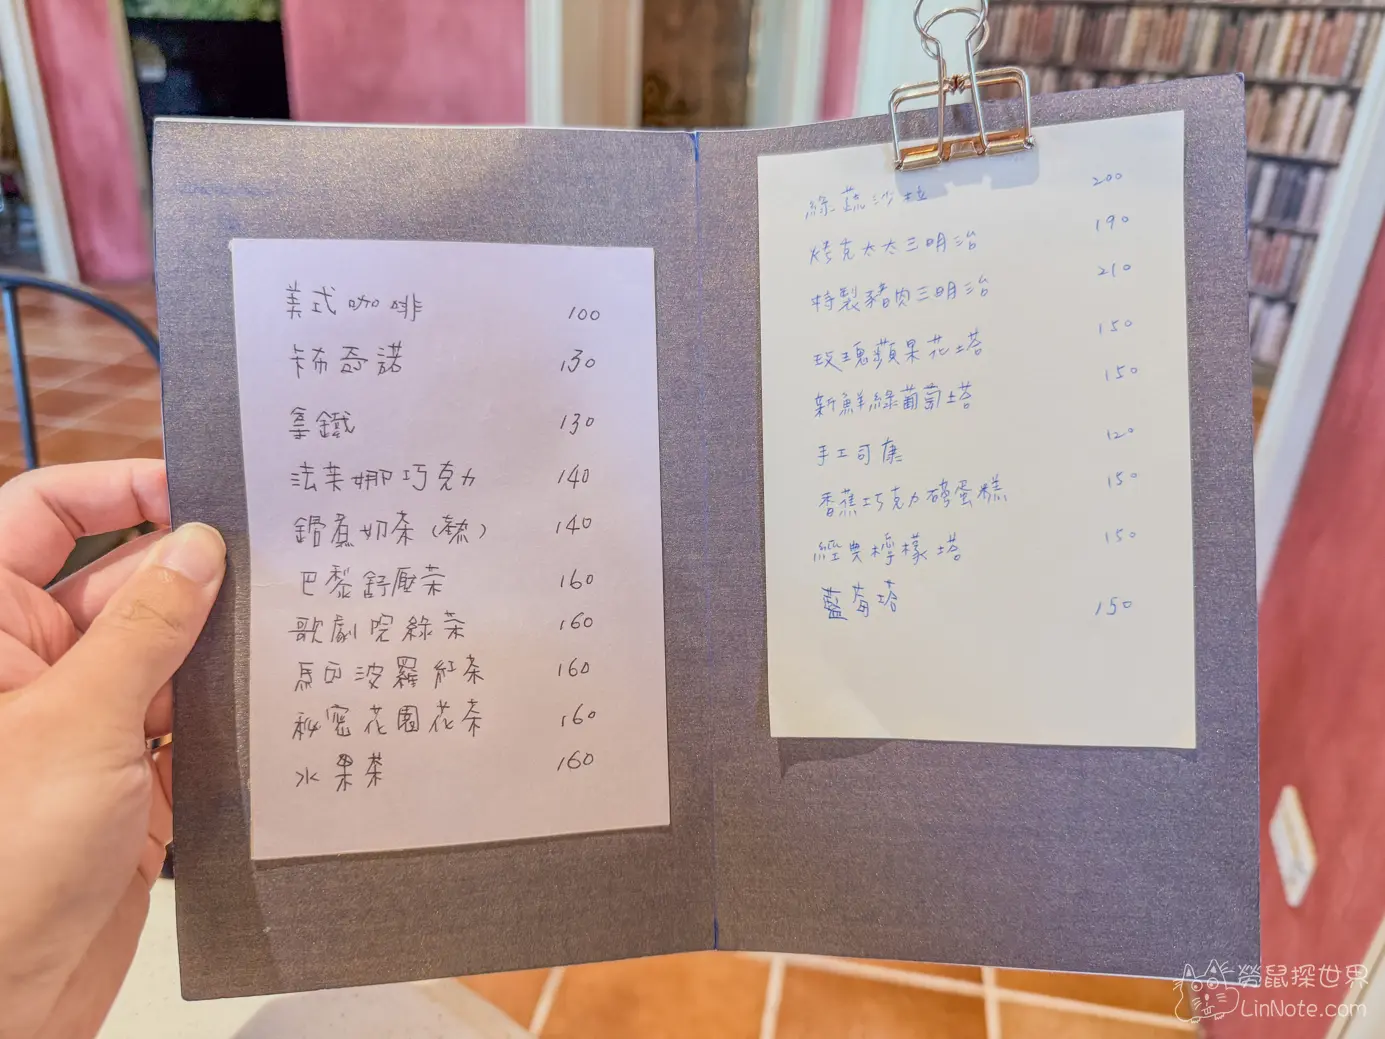 美式咖啡 100
卡布奇諾 130
拿鐵 130
法芙娜巧克力 140
鍋煮奶茶(熱) 140
巴黎舒壓茶 160
歌劇院綠茶 160
馬可波羅紅茶 160
秘密花園花茶 160
水果茶 160
綠蔬沙拉 200
烤克太太三明治 190
特製豬肉三明治 210
玫瑰蘋果花塔 150
新鮮綠葡萄塔 150
手工司康 120
香蕉巧克力磅蛋糕 150
經典檸檬塔 150
藍莓塔 150
勞鼠探世界
LinNote.com